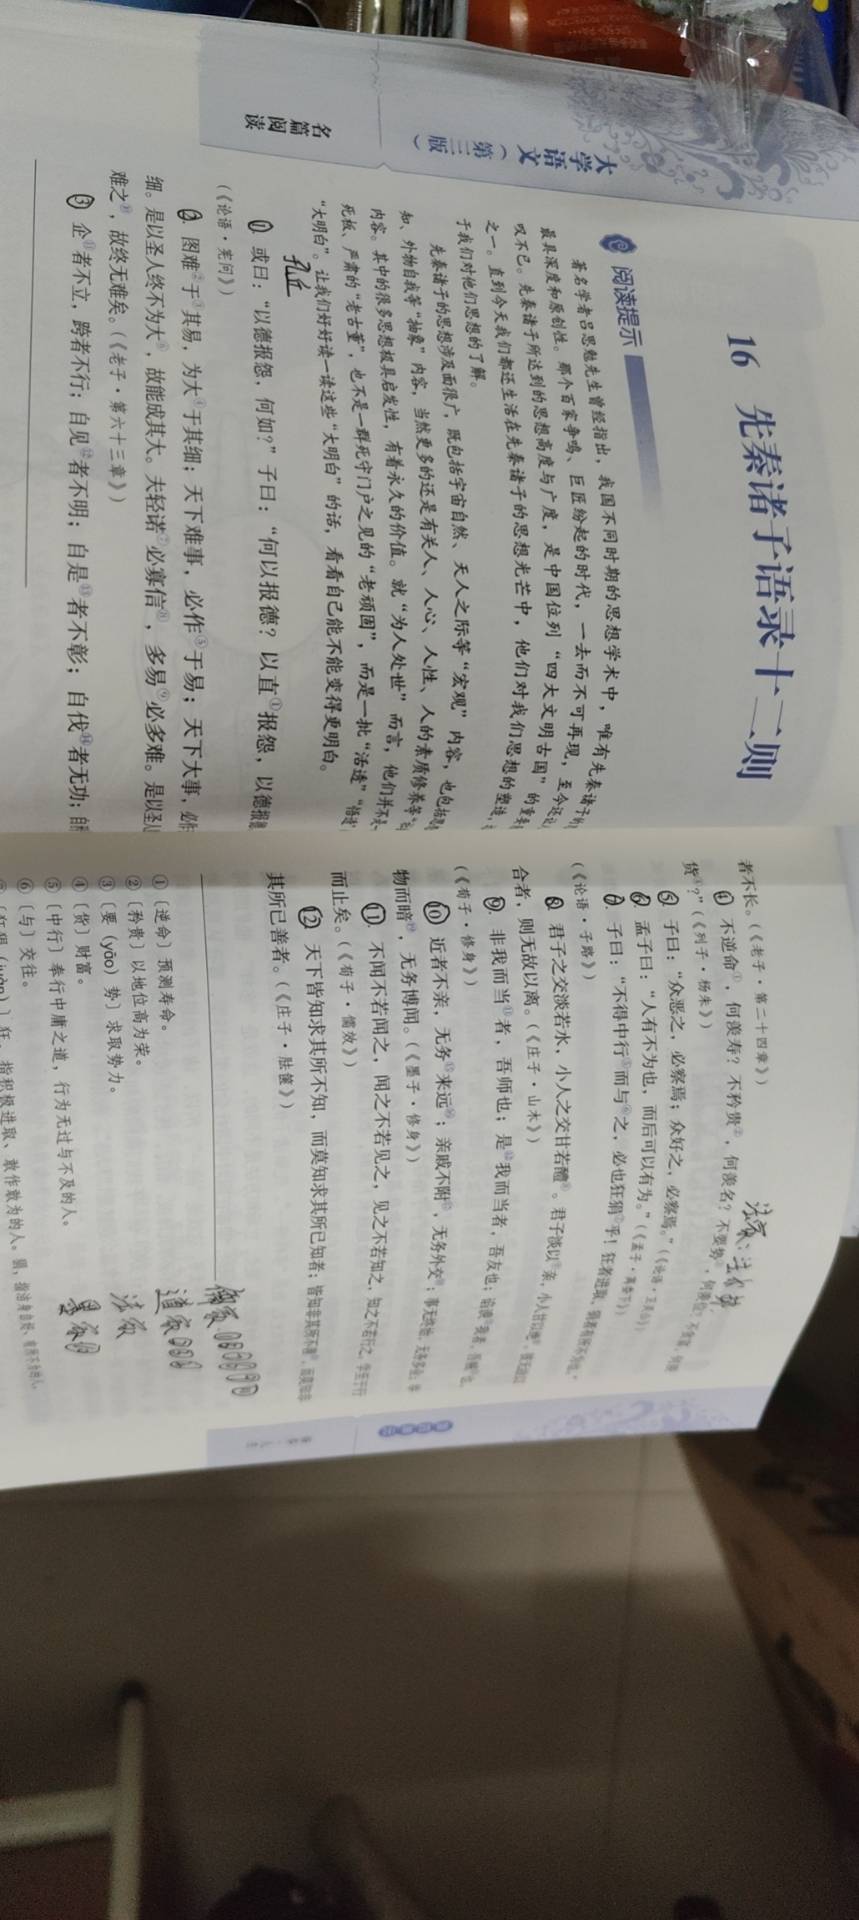 大学语文（第三版）
名篇阅读
16 先秦诸子语录十二则
阅读提示
著名学者吕思勉先生曾经指出，我国不同时期的思想学术中，唯有先秦诸子
最具深度和原创性。那个百家争鸣、巨匠纷起的时代，一去而不可再现，至今还让
叹不已。先秦诸子所达到的思想高度与广度，是中国位列“四大文明古国”的重要
之一。直到今天我们都还生活在先秦诸子的思想光芒中，他们对我们思想的塑造，
于我们对他们思想的了解。
先秦诸子的思想涉及面很广，既包括宇宙自然、天人之际等“宏观”内容，也包括
知、外物自我等“抽象”内容，当然更多的还是有关人、人心、人性、人的素质修养等
内容。其中的很多思想极具启发性，有着永久的价值。就“为人处世”而言，他们并不是
死板、严肃的“老古董”，也不是一群死守门户之见的“老顽固”，而是一批“活透”“悟
“大明白”。让我们好好读一读这些“大明白”的话，看看自己能不能变得更明白。
孔丘
① 或曰：“以德报怨，何如？”子曰：“何以报德？以直①报怨，以德报
（《论语·宪问》）
② 图难②于③其易，为大④于其细；天下难事，必作⑤于易；天下大事，必作
细。是以圣人终不为大⑥，故能成其大。夫轻诺⑦必寡信⑧，多易⑨必多难。是以圣人
难之⑩，故终无难矣。（《老子·第六十三章》）
③ 企⑪者不立，跨者不行；自见⑫者不明；自是⑬者不彰；自伐⑭者无功；自
者不长。（《老子·第二十四章》）
④ 不逆命①，何羡寿？不矜贵②，何羡名？不要势③，何羡位？不贪富，何羡
货④？”（《列子·杨朱》）
⑤ 子曰：“众恶之，必察焉；众好之，必察焉。”（《论语·卫灵公》）
⑥ 孟子曰：“人有不为也，而后可以有为。”（《孟子·离娄下》）
⑦ 子曰：“不得中行⑤而与⑥之，必也狂狷⑦乎！狂者进取，狷者有所不为也。”
（《论语·子路》）
⑧ 君子之交淡若水，小人之交甘若醴⑧。君子淡以⑨亲，小人甘以绝⑩。彼无故以
合者，则无故以离。（《庄子·山木》）
⑨ 非我而当⑪者，吾师也；是⑫我而当者，吾友也；谄谀⑬我者，吾贼⑭也。
（《荀子·修身》）
⑩ 近者不亲，无务⑮来远⑯；亲戚不附⑰，无务外交⑱；事无终始，无务多业；举
物而暗⑲，无务博闻。（《墨子·修身》）
⑪ 不闻不若闻之，闻之不若见之，见之不若知之，知之不若行之，学至于行
而止矣。（《荀子·儒效》）
⑫ 天下皆知求其所不知，而莫知求其所已知者；皆知非其所不善⑳，而莫知非
其所已善者。（《庄子·胠箧》）
①〔逆命〕预测寿命。
②〔矜贵〕以地位高为荣。
③〔要（yāo）势〕求取势力。
④〔货〕财富。
⑤〔中行〕奉行中庸之道，行为无过与不及的人。
⑥〔与〕交往。
儒家
道家
法家
墨家⑩